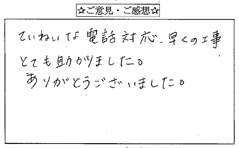 ☆ご意見・ご感想☆
ていねいな電話対応、早くの工事
とても助かりました。
ありがとうございました。